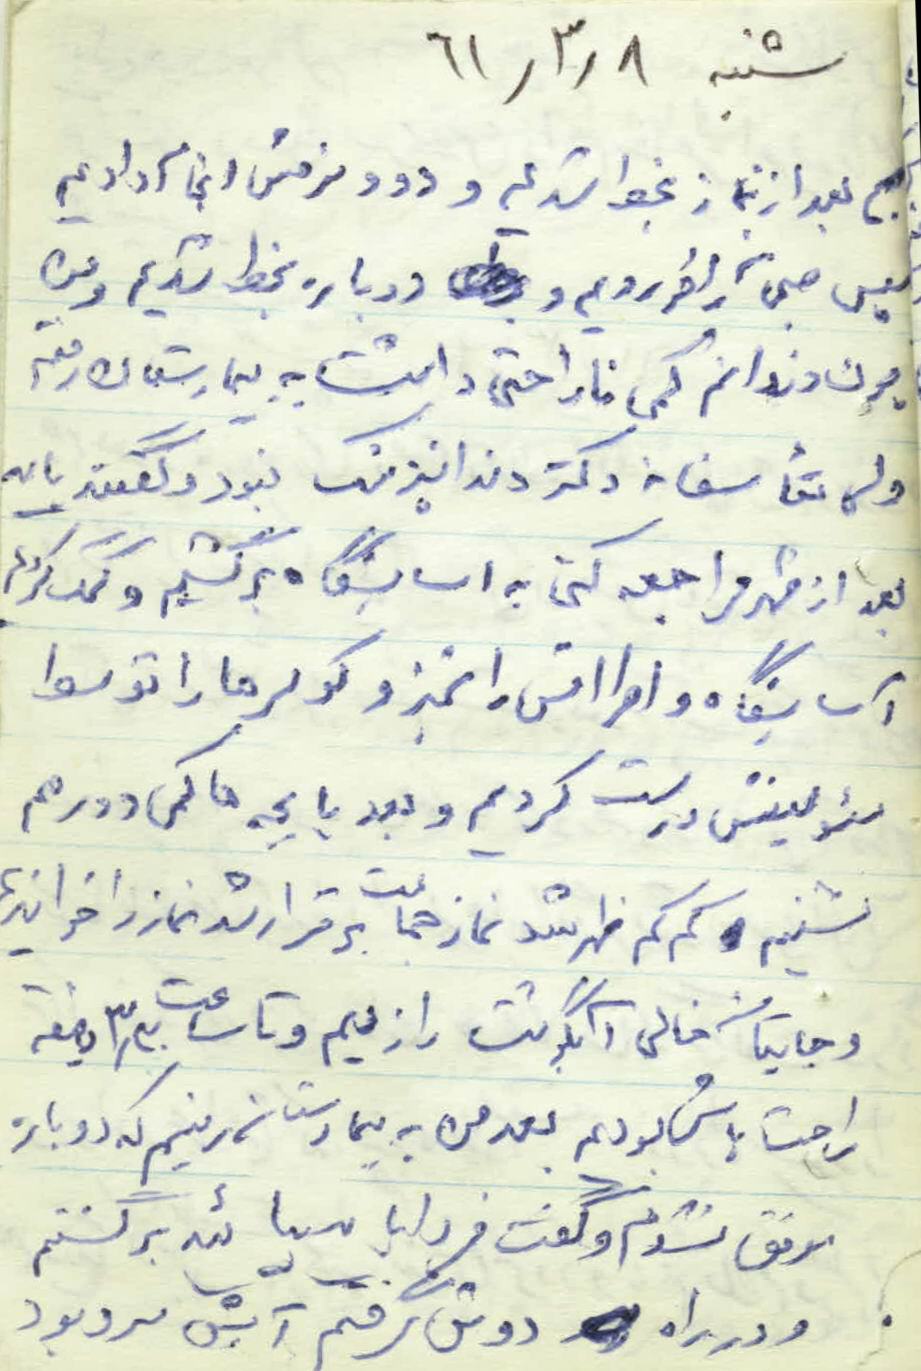 شنبه ۶۱/۳/۸
صبح بعد از نماز بخط شدیم و دو و نرمش انجام دادیم
سپس صبحانه را خوردیم و دوباره بخط شدیم و من
چون دندانم کمی ناراحتی داشت به بیمارستان رفته
ولی متأسفانه دکتر دندانپزشک نبود و گفتند باید
بعد از ظهر مراجعه کنی به اسایشگاه برگشتیم و کمک کردیم
آسایشگاه و اطرافش را تمیز و کولرها را توسط
مسئولینش درست کردیم و بعد با بچه ها کمی دور هم
نشتیم کم کم ظهر شد نماز جماعت برقرار شد نماز را خواندیم
و جایتان خالی آبگوشت را زدیم و تا ساعت ۳/۳۰ دقیقه
راحت باش بودیم بعد من به بیمارستان رفتیم که دوباره
موفق نشدم و گفت فردا بیائید برگشتم
و در راه دوش گرفتم آبش سرد بود